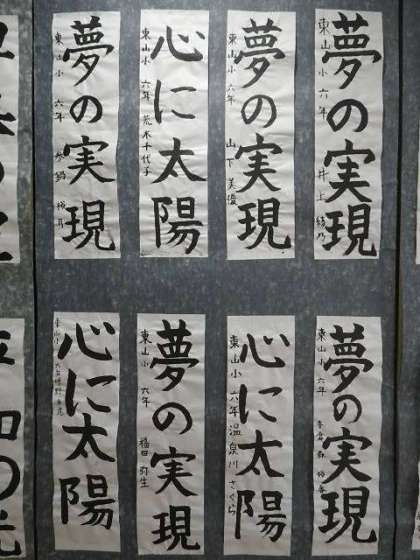 夢の実現
東山小 六年 井上 綾乃
夢の実現
東山小 六年 山下 美優
心に太陽
東山小 六年 荒木千代子
夢の実現
東山小 六年
夢の実現
東山小 六年
心に太陽
東山小 六年 温泉川 さくら
夢の実現
東山小 六年 福田 弥生
心に太陽